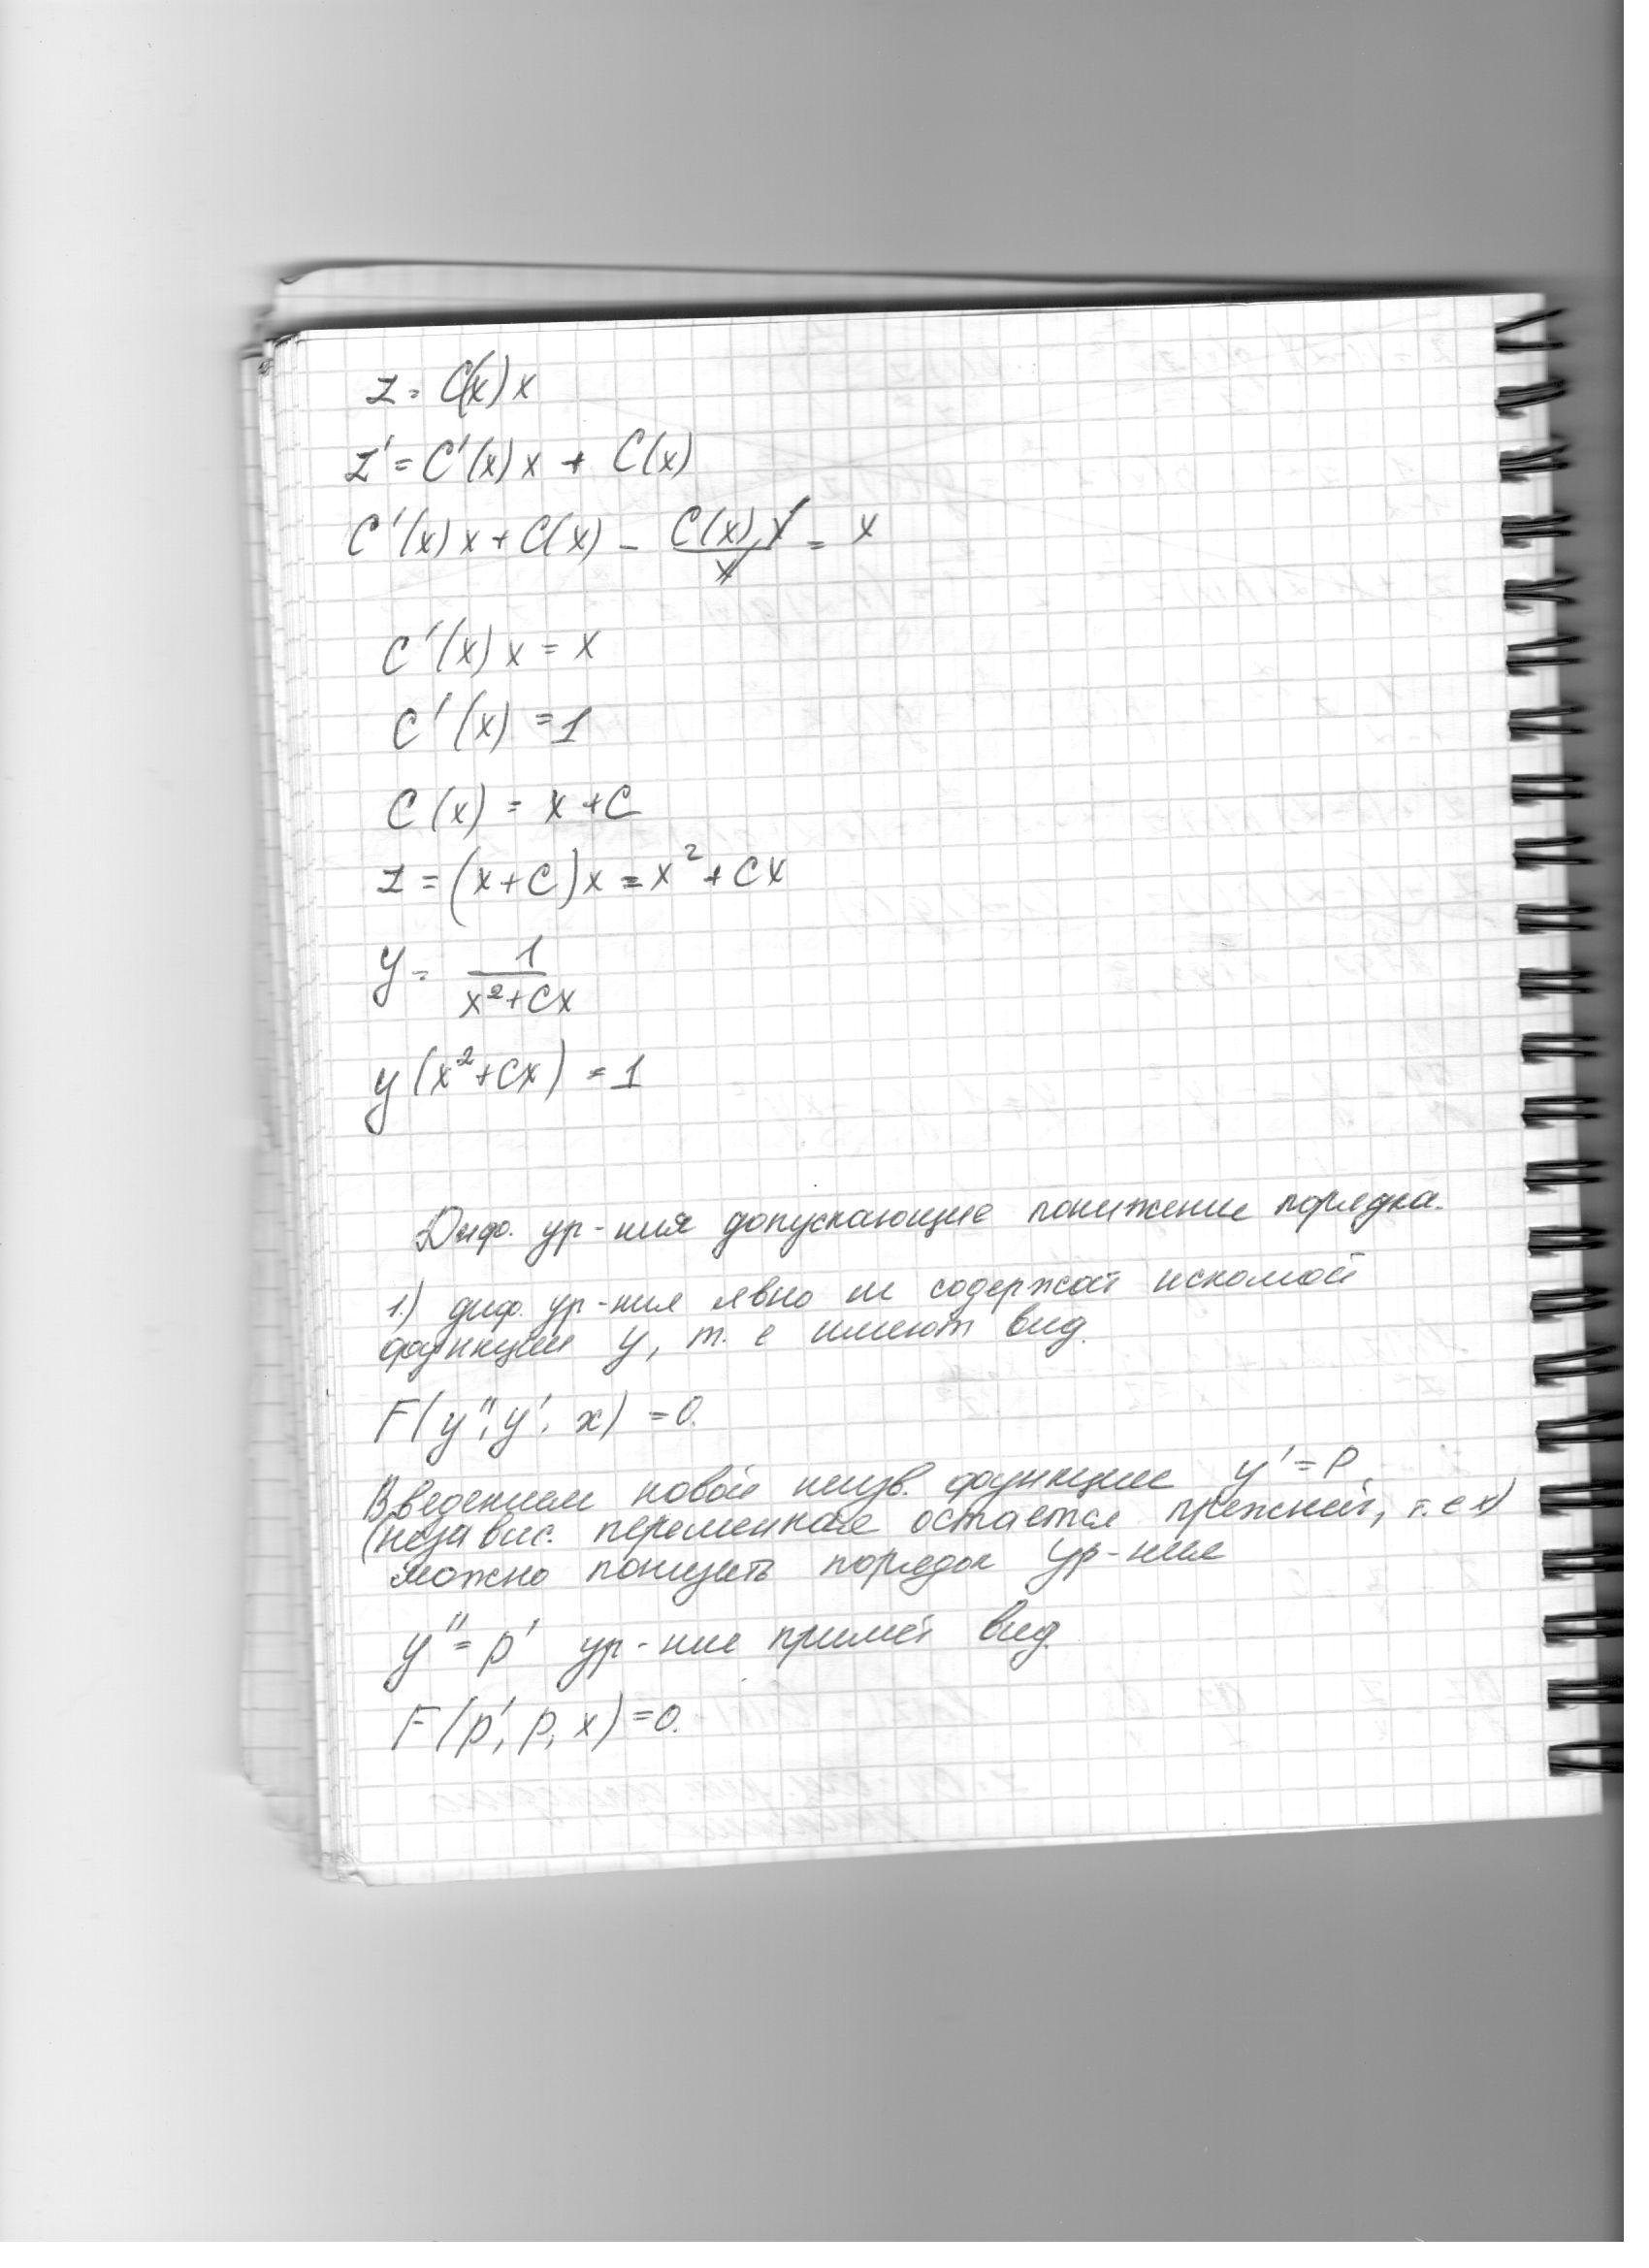 z = C(x) x
z' = C'(x) x + C(x)
C'(x) x + C(x) - C(x) x / x = x
C'(x) x = x
C'(x) = 1
C(x) = x + C
z = (x + C) x = x² + Cx
y = 1 / (x² + Cx)
y (x² + Cx) = 1
Диф. ур-ния допускающие понижение порядка.
1.) диф. ур-ния явно не содержат искомой
функции y, т. е имеют вид.
F(y'', y', x) = 0.
Введением новой неизв. функции y' = P
(независ. переменная остается прежней, т. е x)
можно понизить порядок ур-ния
y'' = p' ур-ние примет вид.
F(p', p, x) = 0.